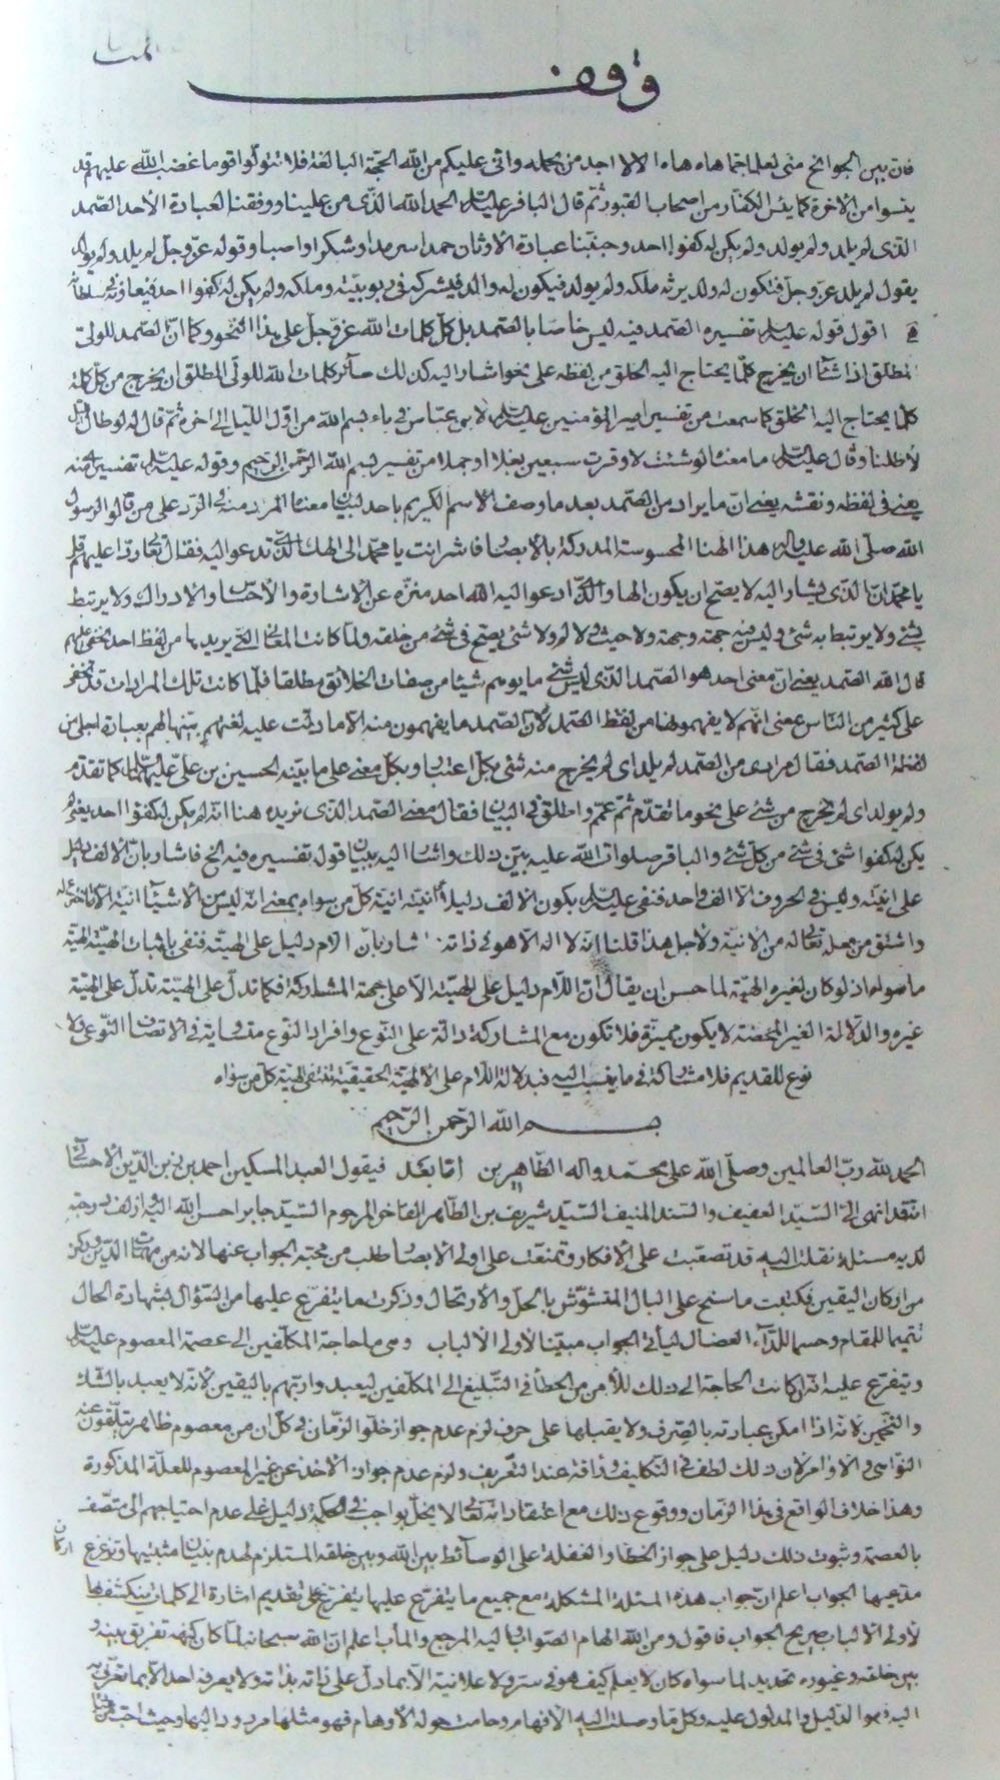 وقف
فان بين الجوانح منى لعلما جما هاه هاه الا لا اجد من يحمله وانى عليكم من الله الحجة البالغة فلا تتولوا قوما غضب الله عليهم قد
يئسوا من الاخرة كما يئس الكفار من اصحاب القبور ثم قال الباقر عليه السلم الحمد لله الذى من علينا ووفقنا لعبادة الأحد الصمد
الذى لم يلد ولم يولد ولم يكن له كفوا احد وجنبنا عبادة الاوثان حمدا سرمدا وشكرا واصبا وقوله عز وجل لم يلد ولم يولد
يقول لم يلد عز وجل فيكون له ولد يرثه ملكه ولم يولد فيكون له والد فيشركه فى ربوبيته وملكه ولم يكن له كفوا احد فيعاونه فى سلطانه
اقول قوله عليه السلم تفسيره الصمد فيه ليس خاصا بالصمد بل كل كلمات الله عز وجل على هذا النحو وكما ان الصمد للولى
المطلق اذا شاء ان يخرج كلما يحتاج اليه الخلق من لفظه على نحو اشار اليه كذلك سائر كلمات الله للولى المطلق ان يخرج من كل كلمة
كلما يحتاج اليه الخلق كما سمعت من تفسير امير المؤمنين عليه السلم لابن عباس فى باء بسم الله من اول الليل الى اخره ثم قال له لو طال الليل
لأطلنا وقال عليه السلم ما معناه لو شئت لاوقرت سبعين بغلا او جملا من تفسير بسم الله الرحمن الرحيم وقوله عليه السلم تفسيره فيه
يعنى فى لفظه ونقشه يعنى ان ما يراد من الصمد بعد ما وصف الاسم الكريم باحد لبيان معناه المراد منه فى الرد على من قالوا لرسول
الله صلى الله عليه واله هذا الهنا المحسوسة المدركة بالابصار فاشر انت يا محمد الى الهك الذى تدعو اليه فقال تعالى ردا عليهم قل
يا محمد ان الذى يشار اليه لا يصح ان يكون الها والذى ادعو اليه الله احد منزه عن الاشارة والاحساس والادراك ولا يرتبط
بشئ ولا يرتبط به شئ وليس فيه جهة وجهة ولا حيث ولا لم ولا شئ يصح فى شئ من خلقه ولما كانت المعانى التى يريدها من لفظ احد تخفى عليهم
قال الله الصمد يعنى ان معنى احد هو الصمد الذى ليس شئ ما يوهم شيئا من صفات الخلائق مطلقا فلما كانت تلك المرادات قد تخفى
على كثير من الناس بمعنى انهم لا يفهمونها من لفظ الصمد لان الصمد ما يفهمون منه الا ما دلت عليه لغتهم بينها لهم بعبارة اجلى من
لفظة الصمد فقال مرادى من الصمد لم يلد اى لم يخرج منه شئ بكل اعتبار وبكل معنى على ما بينه الحسين بن على عليهما السلم كما تقدم
ولم يولد اى لم يخرج من شئ على نحو ما تقدم ثم عمم واطلق فى البيان فقال معنى الصمد الذى نريده هنا انه لم يكن له كفوا احد يعنى لم
يكن له كفوا شئ فى شئ من كل شئ والباقر صلوات الله عليه بين ذلك واشار اليه ببيان قوله تفسيره فيه الخ فاشار بان الالف دليل
على انيته وليس فى الحروف الا الف واحد فنفى عليه السلم بكون الالف دليلا انيته انية كل من سواه بمعنى انه ليس من الاشياء انية الا ما اخترعه
واشتق من جعله تعالى له من الانية ولاجل هذا قلنا انه لا اله الا هو فى ذاته اشار بان اللام دليل على الهيته فنفى باثبات الهيته الهية
ما سواه اذ لو كان لغيره الهية لما حسن ان يقال ان اللام دليل على الهيته الا على جهة المشاركة فكما تدل على الهيته تدل على الهية
غيره والدلالة الغير المحضة لا يكون مميزة فلا تكون مع المشاركة دالة على النوع وافراد النوع متساوية فى الاتصاف النوعى ولا
نوع للقديم فلا مشاركة فى ما ينسب اليه فبدلالة اللام على الالهية الحقيقية تنتفى الهية كل من سواه
بسم الله الرحمن الرحيم
الحمد لله رب العالمين وصلى الله على محمد واله الطاهرين اما بعد فيقول العبد المسكين احمد بن زين الدين الاحسائى
انه قد انهى الى السيد العفيف والسند المنيف السيد شريف بن الطاهر الفاخر المرحوم السيد جابر احسن الله اليه وازلف درجته
لديه مسئلة نقلت اليه قد تصعبت على الافكار وتمنعت على اولى الابصار طلب من محبته الجواب عنها لانه من مهمات الدين وركن
من اركان اليقين فكتبت ما سنح على البال المتشوش بالحل والارتحال وذكرت ما يتفرع عليها من السؤال بشهادة الحال
تتميما للمقام وحسما للداء العضال ليأتى الجواب مبينا لأولى الالباب وهى ما حاجة المكلفين الى عصمة المعصوم عليه السلم
ويتفرع عليه انه ان كانت الحاجة الى ذلك للأمن من الخطأ فى التبليغ الى المكلفين ليعبدوا ربهم باليقين لأنه لا يعبد بالشك
والتخمين لانه اذا امكن عبارته بالصرف ولا يقبلها على حرف لزم عدم جواز خلو الزمان فى كل ان من معصوم ظاهر يتلقون عنه
النواهى والاوامر لان ذلك لطف فى التكاليف ورافة عند التعريف ولزم عدم جواز الأخذ عن غير المعصوم للعلة المذكورة
وهذا خلاف الواقع فى هذا الزمان ووقوع ذلك مع اعتقاد انه تعالى لا يخل بواجب فى الحكمة دليل على عدم احتياجهم الى متصف
بالعصمة وثبوت ذلك دليل على جواز الخطاء والغفلة على الوسائط بين الله وبين خلقه المستلزم لهدم بنيان مثبتيها وتزعزع اركان
مدعيها الجواب اعلم ان جواب هذه المسئلة المشكلة مع جميع ما يتفرع عليها يتفرع على تقديم اشارة الى كلمات ينكشف بها
لأولى الالباب صريح الجواب فاقول ومن الله الهام الصواب واليه المرجع والمآب اعلم ان الله سبحانه لما كان كنهه تفريق بينه و
بين خلقه وغيوره تحديد لما سواه كان لا يعلم كيف هو فى سر ولا علانية الا بما دل على ذاته بذاته ولا يعرفه احد الا بما تعرف به
اليه فهو الدليل والمدلول عليه وكل ما وصلت اليه الافهام وحامت حوله الأوهام فهو مثلها مردود اليها وحيث احب